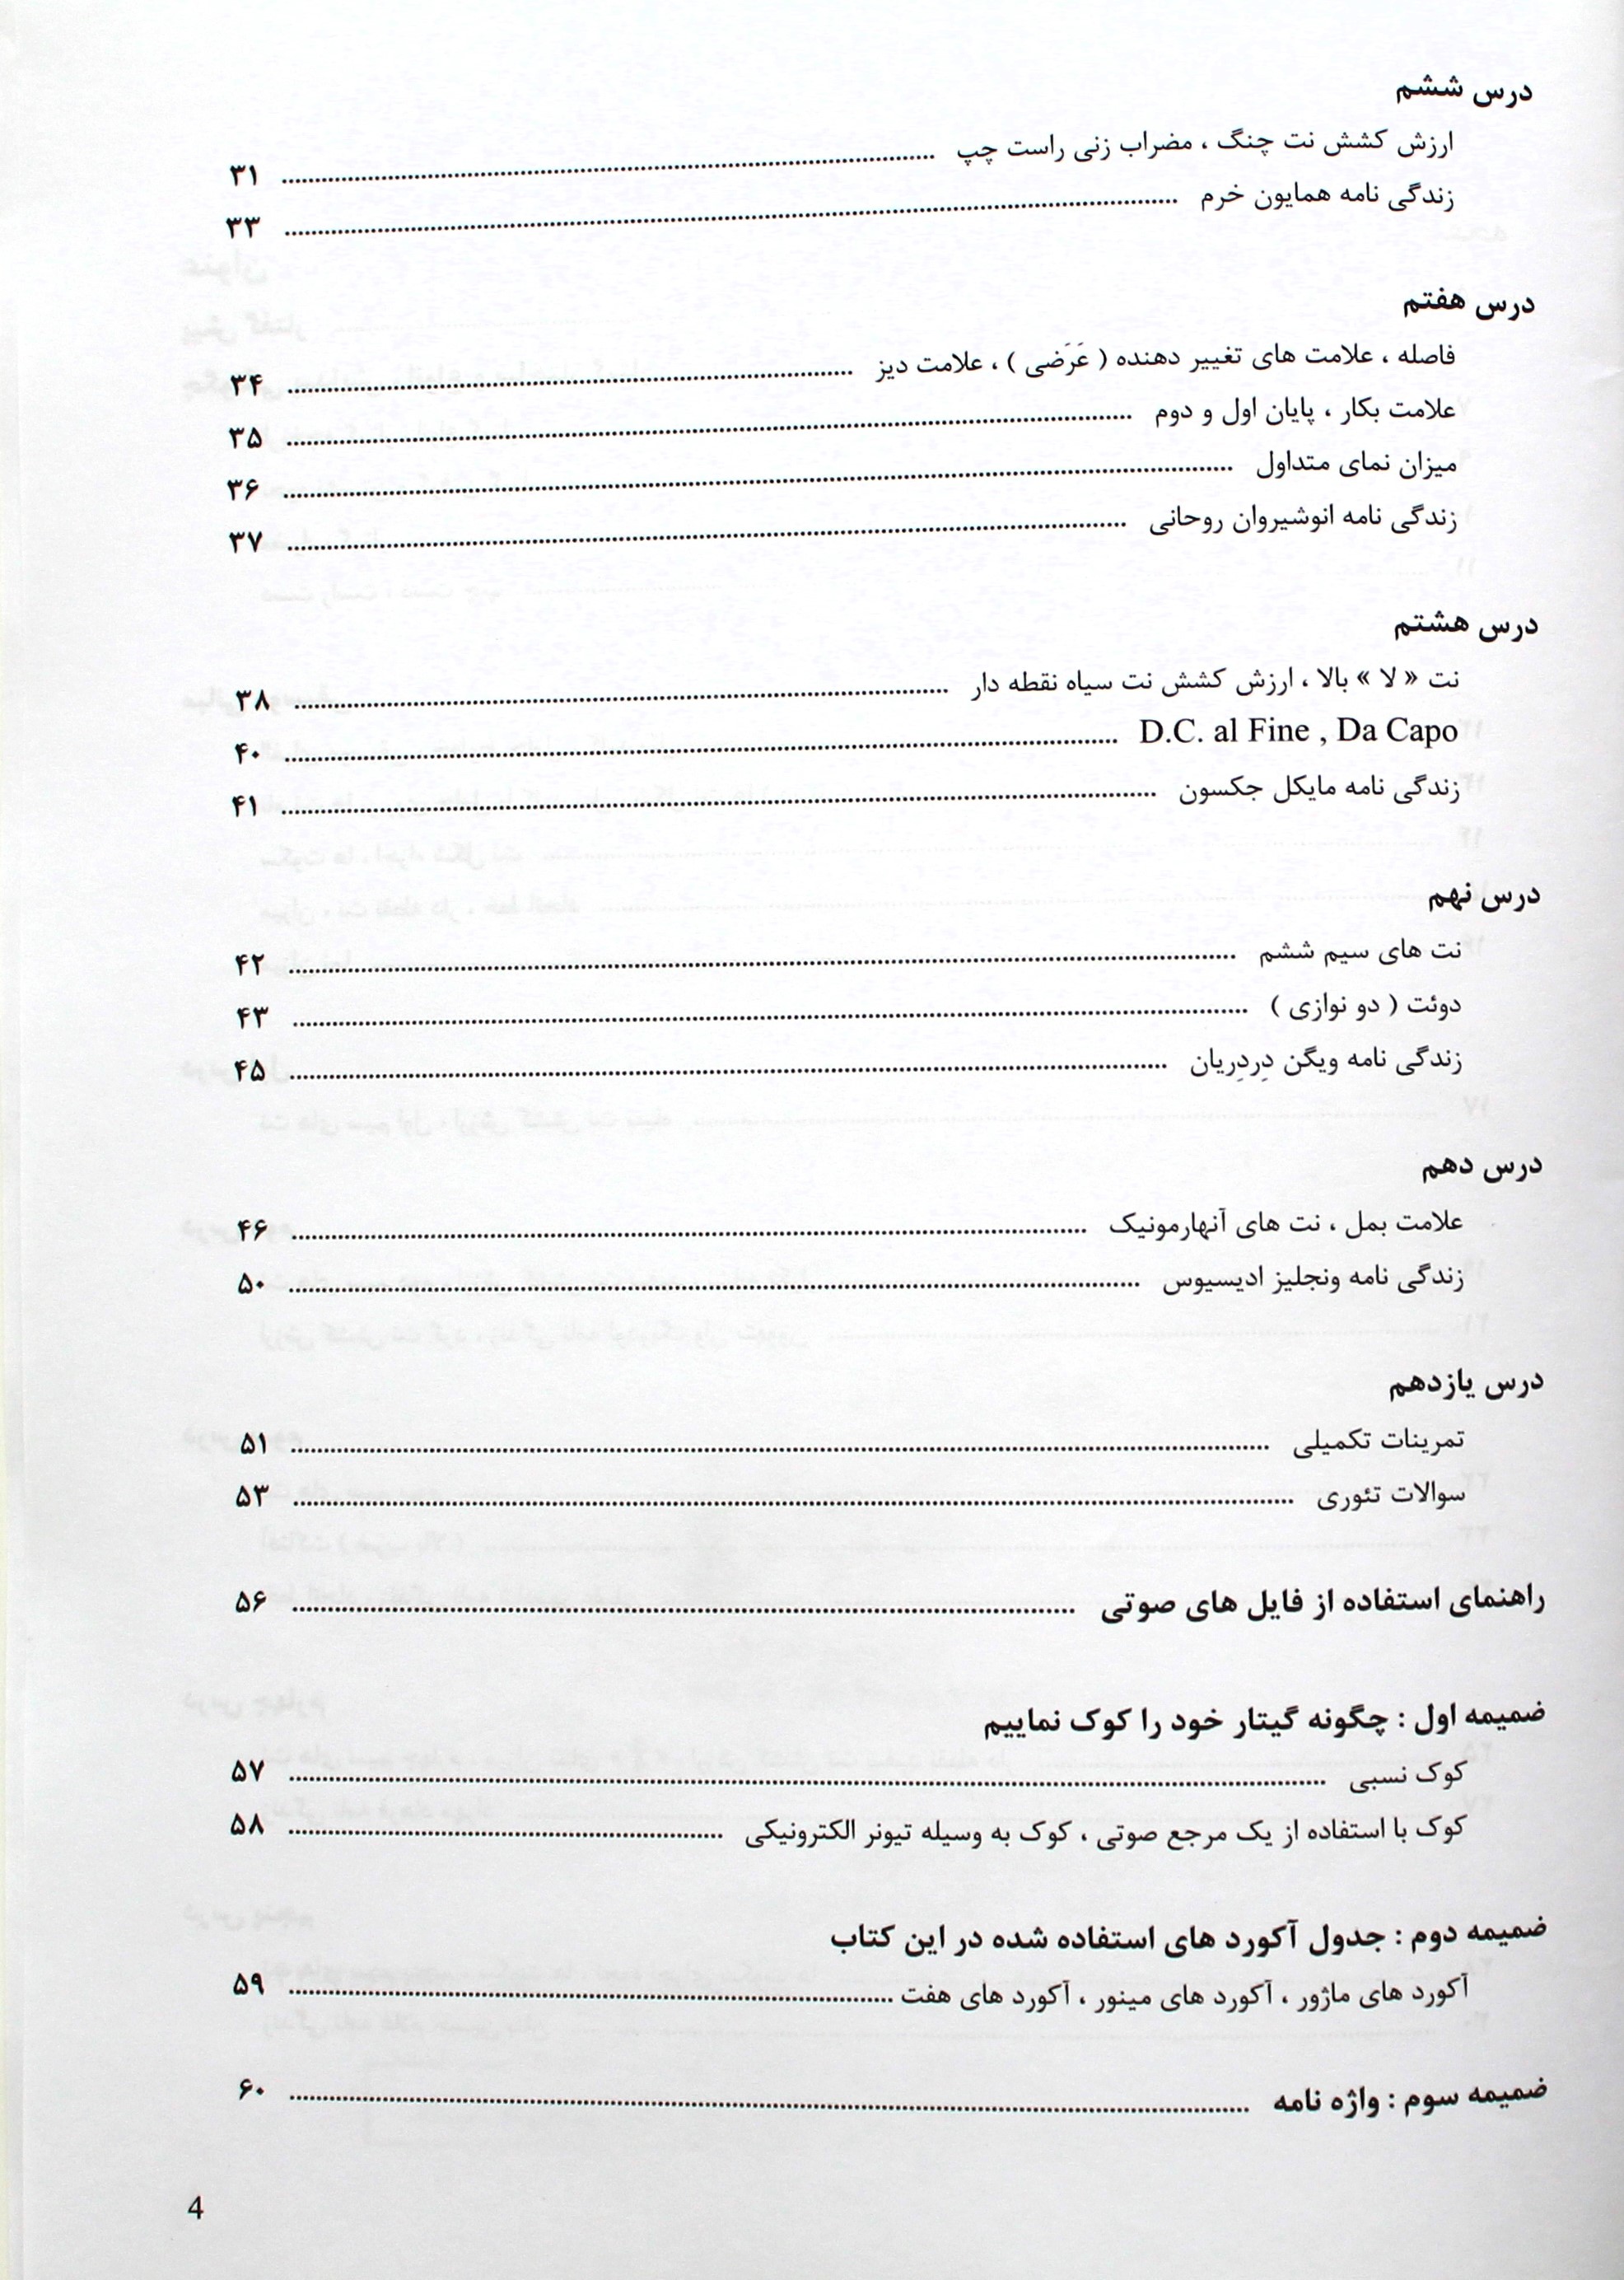 درس ششم
ارزش کشش نت چنگ ، مضراب زنی راست چپ ........ ۳۱
زندگی نامه همایون خرم ........ ۳۳
درس هفتم
فاصله ، علامت های تغییر دهنده ( عَرَضی ) ، علامت دیز ........ ۳۴
علامت بکار ، پایان اول و دوم ........ ۳۵
میزان نمای متداول ........ ۳۶
زندگی نامه انوشیروان روحانی ........ ۳۷
درس هشتم
نت « لا » بالا ، ارزش کشش نت سیاه نقطه دار ........ ۳۸
D.C. al Fine , Da Capo ........ ۴۰
زندگی نامه مایکل جکسون ........ ۴۱
درس نهم
نت های سیم ششم ........ ۴۲
دوئت ( دو نوازی ) ........ ۴۳
زندگی نامه ویگن دِردِریان ........ ۴۵
درس دهم
علامت بمل ، نت های آنهارمونیک ........ ۴۶
زندگی نامه ونجلیز ادیسیوس ........ ۵۰
درس یازدهم
تمرینات تکمیلی ........ ۵۱
سوالات تئوری ........ ۵۳
راهنمای استفاده از فایل های صوتی ........ ۵۶
ضمیمه اول : چگونه گیتار خود را کوک نماییم
کوک نسبی ........ ۵۷
کوک با استفاده از یک مرجع صوتی ، کوک به وسیله تیونر الکترونیکی ........ ۵۸
ضمیمه دوم : جدول آکورد های استفاده شده در این کتاب
آکورد های ماژور ، آکورد های مینور ، آکورد های هفت ........ ۵۹
ضمیمه سوم : واژه نامه ........ ۶۰
4